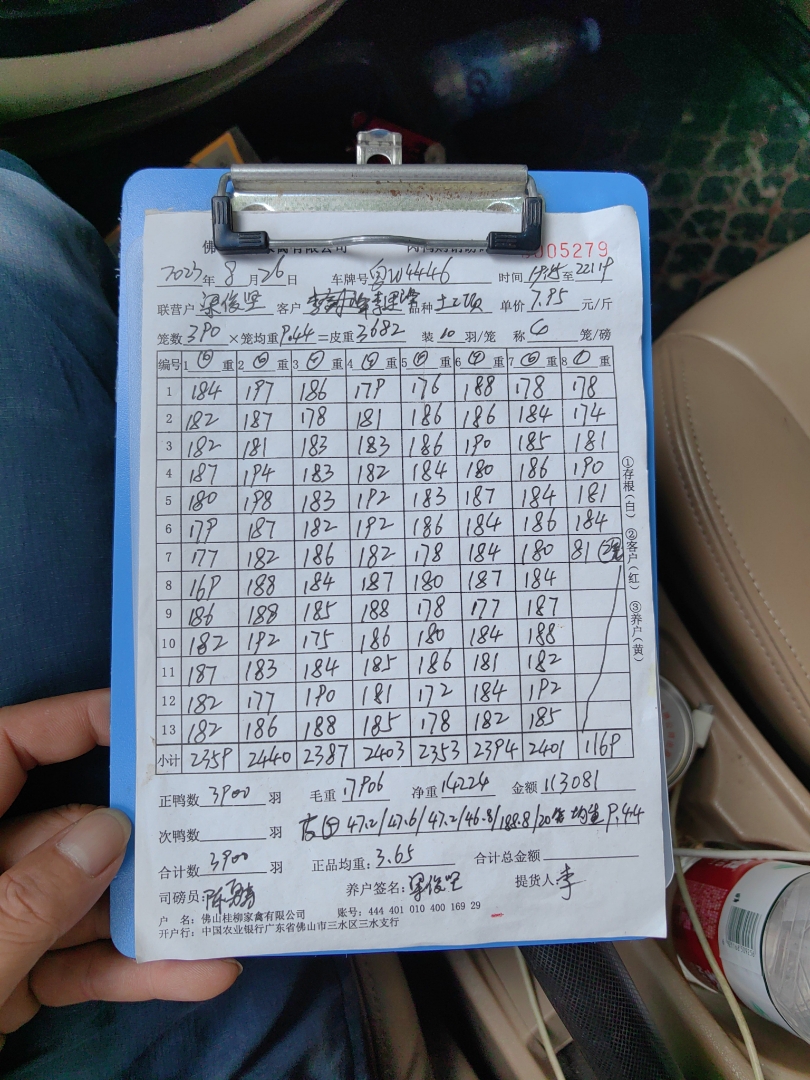 佛 家禽有限公司 肉鸭购销磅 0005279
2023年8月26日 车牌号 W4446 时间 至
联营户 梁俊坚 客户 品种 单价 7.95 元/斤
笼数 390 ×笼均重 9.44 =皮重 3682 装 10 羽/笼 称 6 笼/磅
编号 1 ⑥ 重 2 ⑥ 重 3 重 4 重 5 重 6 重 7 ⑥ 重 8 重
1 184 197 186 179 176 188 178 178
2 182 187 178 181 186 186 184 174
3 182 181 183 183 186 190 185 181
4 187 194 183 182 184 180 186 190
5 180 198 183 192 183 187 184 181
6 179 187 182 192 186 184 186 184
7 177 182 186 182 178 184 180 81
8 169 188 184 187 180 187 184
9 186 188 185 188 178 177 187
10 182 192 175 186 180 184 188
11 187 183 184 185 186 181 182
12 182 177 190 181 172 184 192
13 182 186 188 185 178 182 185
小计 2359 2440 2387 2403 2353 2394 2401 1169
正鸭数 3900 羽 毛重 17906 净重 14224 金额 113081
次鸭数 羽 47.2/47.6/47.2/46.8/188.8/20笼 均重 9.44
合计数 3900 羽 正品均重: 3.65 合计总金额
司磅员: 养户签名: 梁俊坚 提货人 李
户 名: 佛山桂柳家禽有限公司 账号: 444 401 010 400 169 29
开户行: 中国农业银行广东省佛山市三水区三水支行
①存根(白) ②客户(红) ③养户(黄)